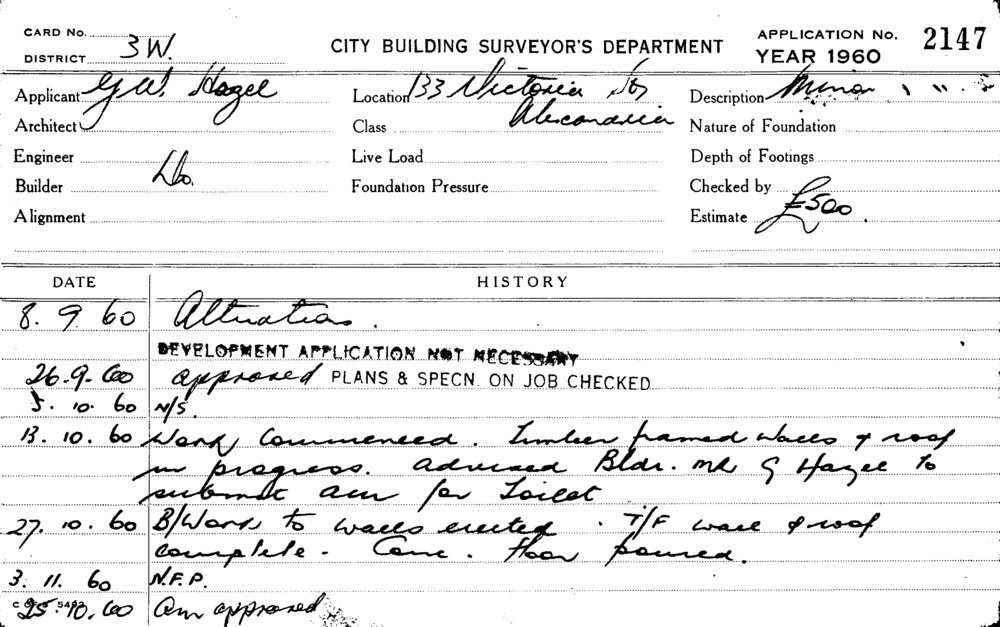 CARD No.
DISTRICT 3W.
CITY BUILDING SURVEYOR'S DEPARTMENT
APPLICATION No. 2147
YEAR 1960
Applicant G.W. Hazel
Location 133 Victoria St
Alexandria
Description Minor
Architect
Class
Nature of Foundation
Engineer
Live Load
Depth of Footings
Builder Do.
Foundation Pressure
Checked by
Alignment
Estimate £500.
DATE HISTORY
8. 9. 60 Alterations.
DEVELOPMENT APPLICATION NOT NECESSARY
26.9.60 approved PLANS & SPECN. ON JOB CHECKED
5. 10. 60 N/S.
13. 10. 60 Work Commenced. Timber framed walls & roof
in progress. advised Bldr. Mr G Hazel to
submit am for Toilet
27. 10. 60 B/Work to walls erected. T/F wall & roof
complete. Conc. floor poured.
3. 11. 60 N.F.P.
25.10.60 Am approved